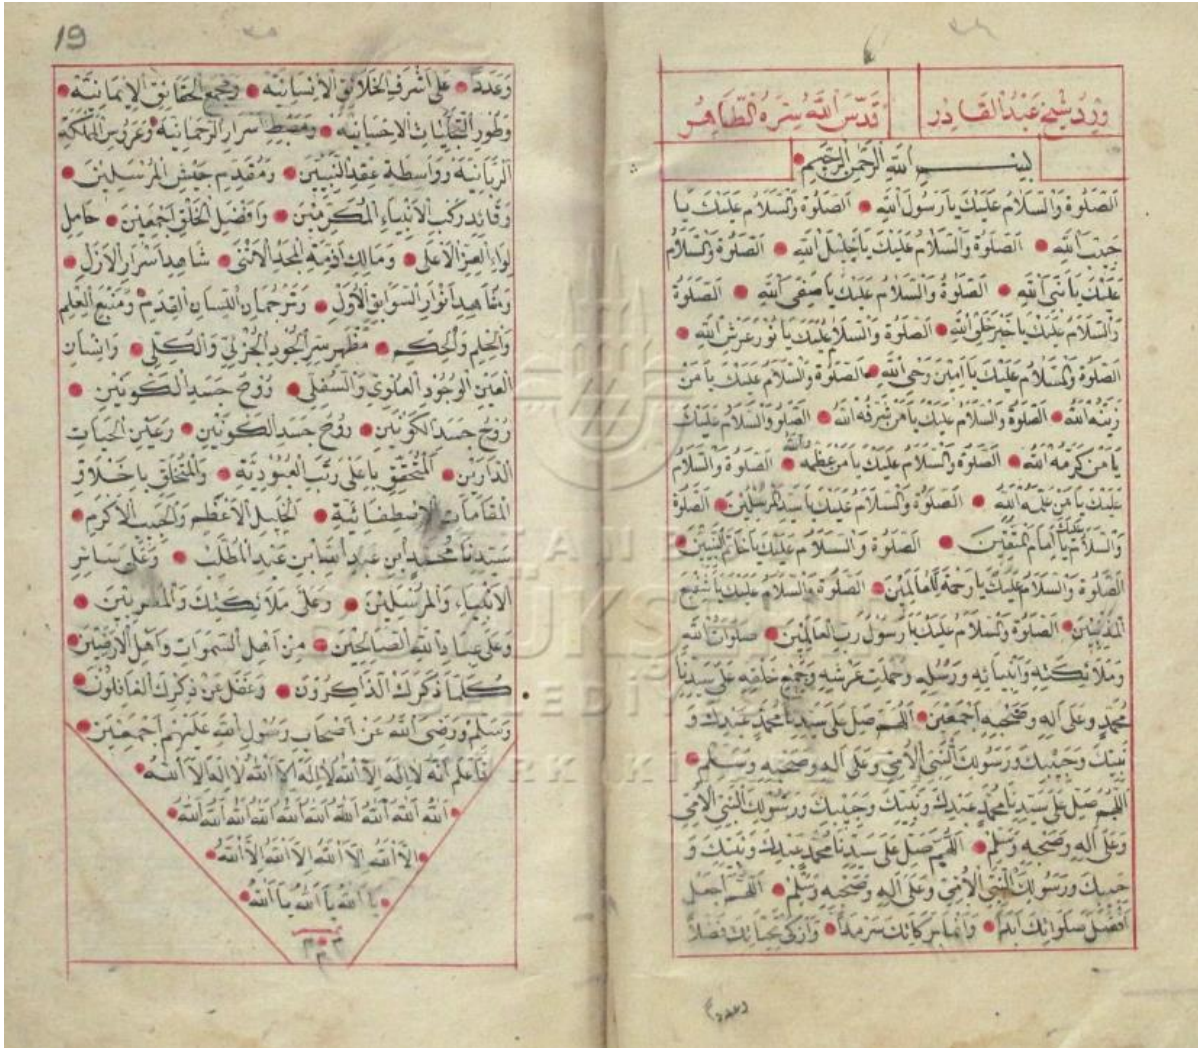 ورد شيخ عبد القادر قدس الله سره الطاهر
بسم الله الرحمن الرحيم
الصلوة والسلام عليك يا رسول الله الصلوة والسلام عليك يا
حبيب الله الصلوة والسلام عليك يا خليل الله الصلوة والسلام
عليك يا نبي الله الصلوة والسلام عليك يا صفي الله الصلوة
والسلام عليك يا خير خلق الله الصلوة والسلام عليك يا نور عرش الله
الصلوة والسلام عليك يا امين وحي الله الصلوة والسلام عليك يا من
زينه الله الصلوة والسلام عليك يا من شرفه الله الصلوة والسلام عليك
يا من كرمه الله الصلوة والسلام عليك يا من عظمه الله الصلوة والسلام
عليك يا من علمه الله الصلوة والسلام عليك يا سيد المرسلين الصلوة
والسلام عليك يا امام المتقين الصلوة والسلام عليك يا خاتم النبيين
الصلوة والسلام عليك يا رحمة للعالمين الصلوة والسلام عليك يا شفيع
المذنبين الصلوة والسلام عليك يا رسول رب العالمين صلوات الله
وملائكته وانبيائه ورسله وحملت عرشه وجميع خلقه على سيدنا
محمد وعلى اله وصحبه اجمعين اللهم صل على سيدنا محمد عبدك و
نبيك وحبيبك ورسولك النبي الامي وعلى اله وصحبه وسلم
اللهم صل على سيدنا محمد عبدك ونبيك وحبيبك ورسولك النبي الامي
وعلى اله وصحبه وسلم اللهم صل على سيدنا محمد عبدك ونبيك و
حبيبك ورسولك النبي الامي وعلى اله وصحبه وسلم اللهم اجعل
افضل صلواتك ابدا وانما بركاتك سرمدا وازكى تحياتك فضلا
وعددا
19
وعددا على اشرف الخلائق الانسانية ومجمع الحقائق الايمانية
وطور التجليات الاحسانية ومهبط اسرار الرحمانية وعروس المملكة
الربانية وواسطة عقد النبيين ومقدم جيش المرسلين
وقائد ركب الانبياء المكرمين وافضل الخلق اجمعين حامل
لواء العز الاعلى ومالك ازمة المجد الاسنى شاهد اسرار الازل
ومشاهد انوار السوابق الاول وترجمان اللسان القدم ومنبع العلم
والحلم والحكم مظهر سر الجود الجزئي والكلي وانسان
العين الوجود العلوي والسفلي روح جسد الكونين
روح جسد الكونين روح جسد الكونين وعين الحيات
الدارين المتحقق باعلى رتب العبودية والمتخلق باخلاق
المقامات الاصطفائية الخليل الاعظم والحبيب الاكرم
سيدنا محمد ابن عبد الله ابن عبد المطلب وعلى سائر
الانبياء والمرسلين وعلى ملائكتك والمقربين
وعلى عباد الله الصالحين من اهل السموات واهل الارضين
كلما ذكرك الذاكرون وغفل عن ذكرك الغافلون
وسلم ورضى الله عن اصحاب رسول الله عليهم اجمعين
فاعلم انه لا اله الا الله لا اله الا الله لا اله الا الله
الله الله الله الله الله الله الله الله الله الله
الا الله الا الله الا الله الا الله
يا الله يا الله يا الله